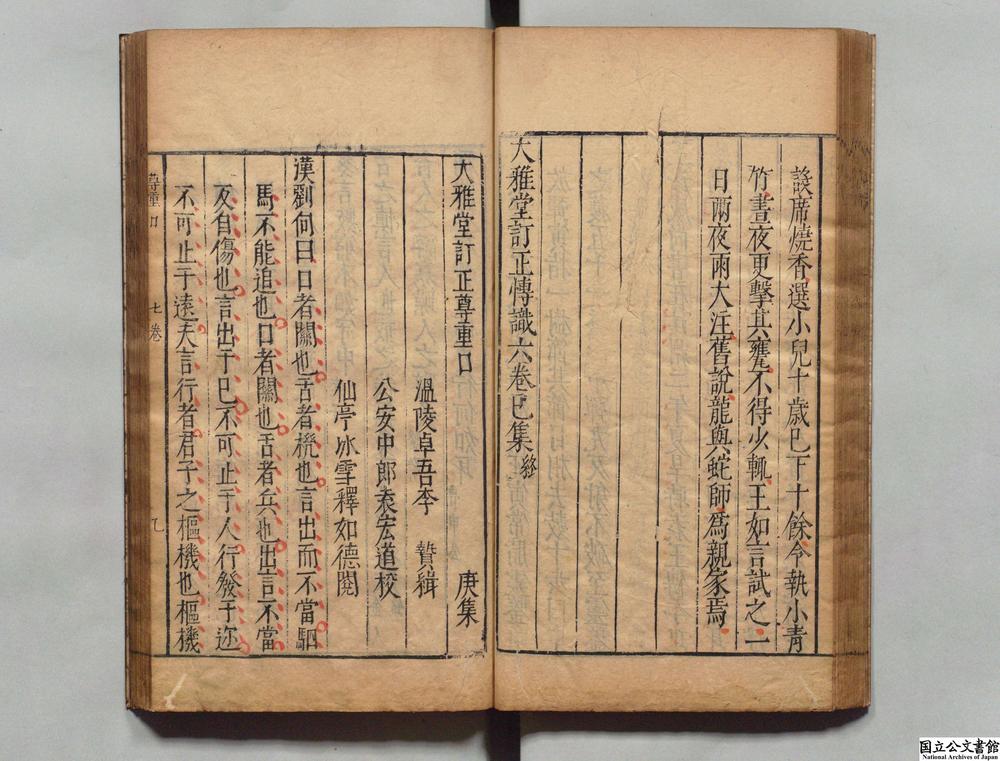 設席燒香選小兒十歲已下十餘令執小青
竹晝夜更擊其甕不得少輒王如言試之一
日兩夜雨大注舊說龍與蛇師爲親家焉
大雅堂訂正博識六卷巳集終
大雅堂訂正尊重口 庚集
溫陵卓吾李 贄緝
公安中郎袁宏道校
仙亭冰雪釋如德閱
漢劉向曰口者關也舌者機也言出而不當駟
馬不能追也口者關也舌者兵也出言不當
反自傷也言出于巳不可止于人行發于迩
不可止于遠夫言行者君子之樞機也樞機
尊重口 七卷 乙
国立公文書館
National Archives of Japan